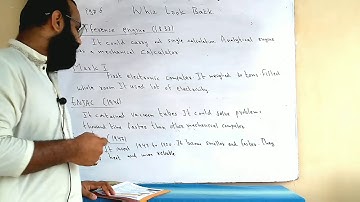 Page 5 While Look Back
fference engine (1833)
It could carry out single calculation Analytical engine
was a mechanical calculator
Mark I
First electronic computer. It weighed 50 tons, filled
whole room It used lot of electricity
ENIAC (1946)
It contained vacuum tubes. It could solve problem
thousand time faster than other mechanical computer
(1947)
It used 1947 to 1950. It became smaller and faster. They
heat and more reliable